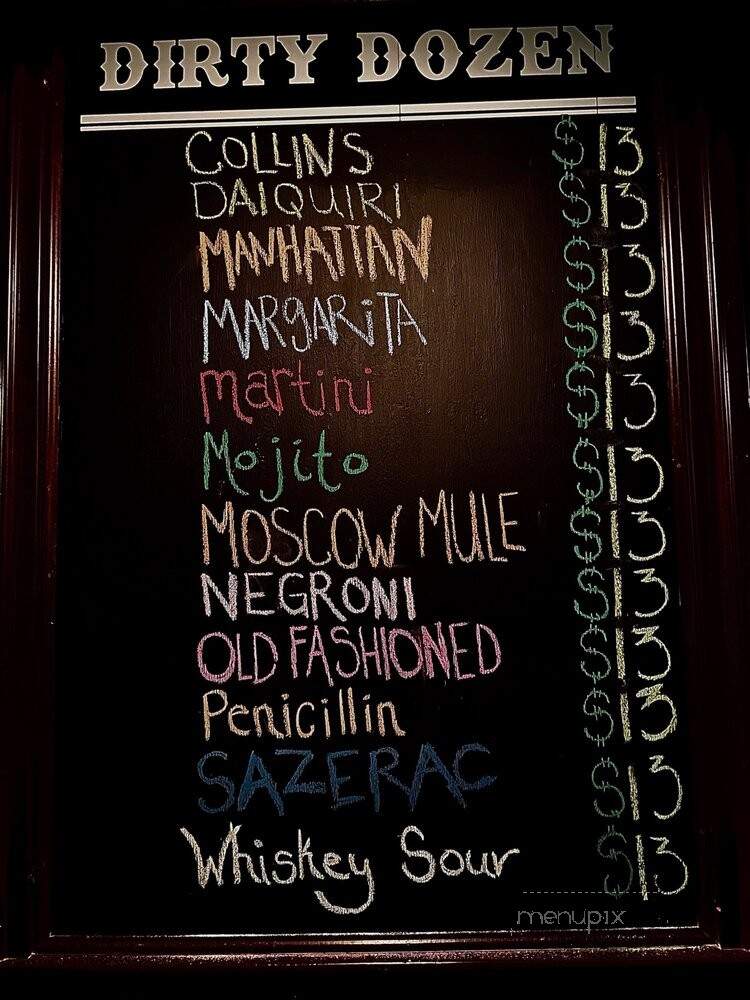 DIRTY DOZEN
COLLINS $13
DAIQUIRI $13
MANHATTAN $13
MARGARiTA $13
martini $13
Mojito $13
MOSCOW MULE $13
NEGRONI $13
OLD FASHIONED $13
Penicillin $13
SAZERAC $13
Whiskey Sour $13
menupix